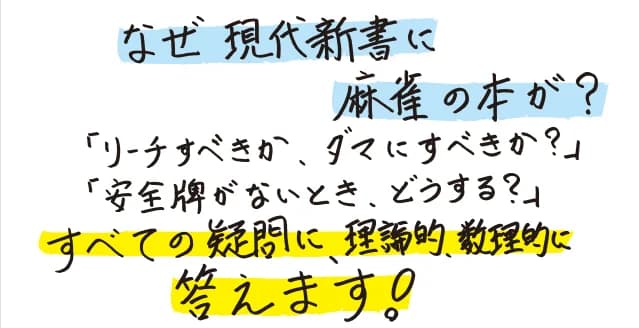 なぜ 現代新書に
麻雀の本が?
「リーチすべきか、ダマにすべきか?」
「安全牌がないとき、どうする?」
すべての疑問に、理論的、数理的に
答えます!